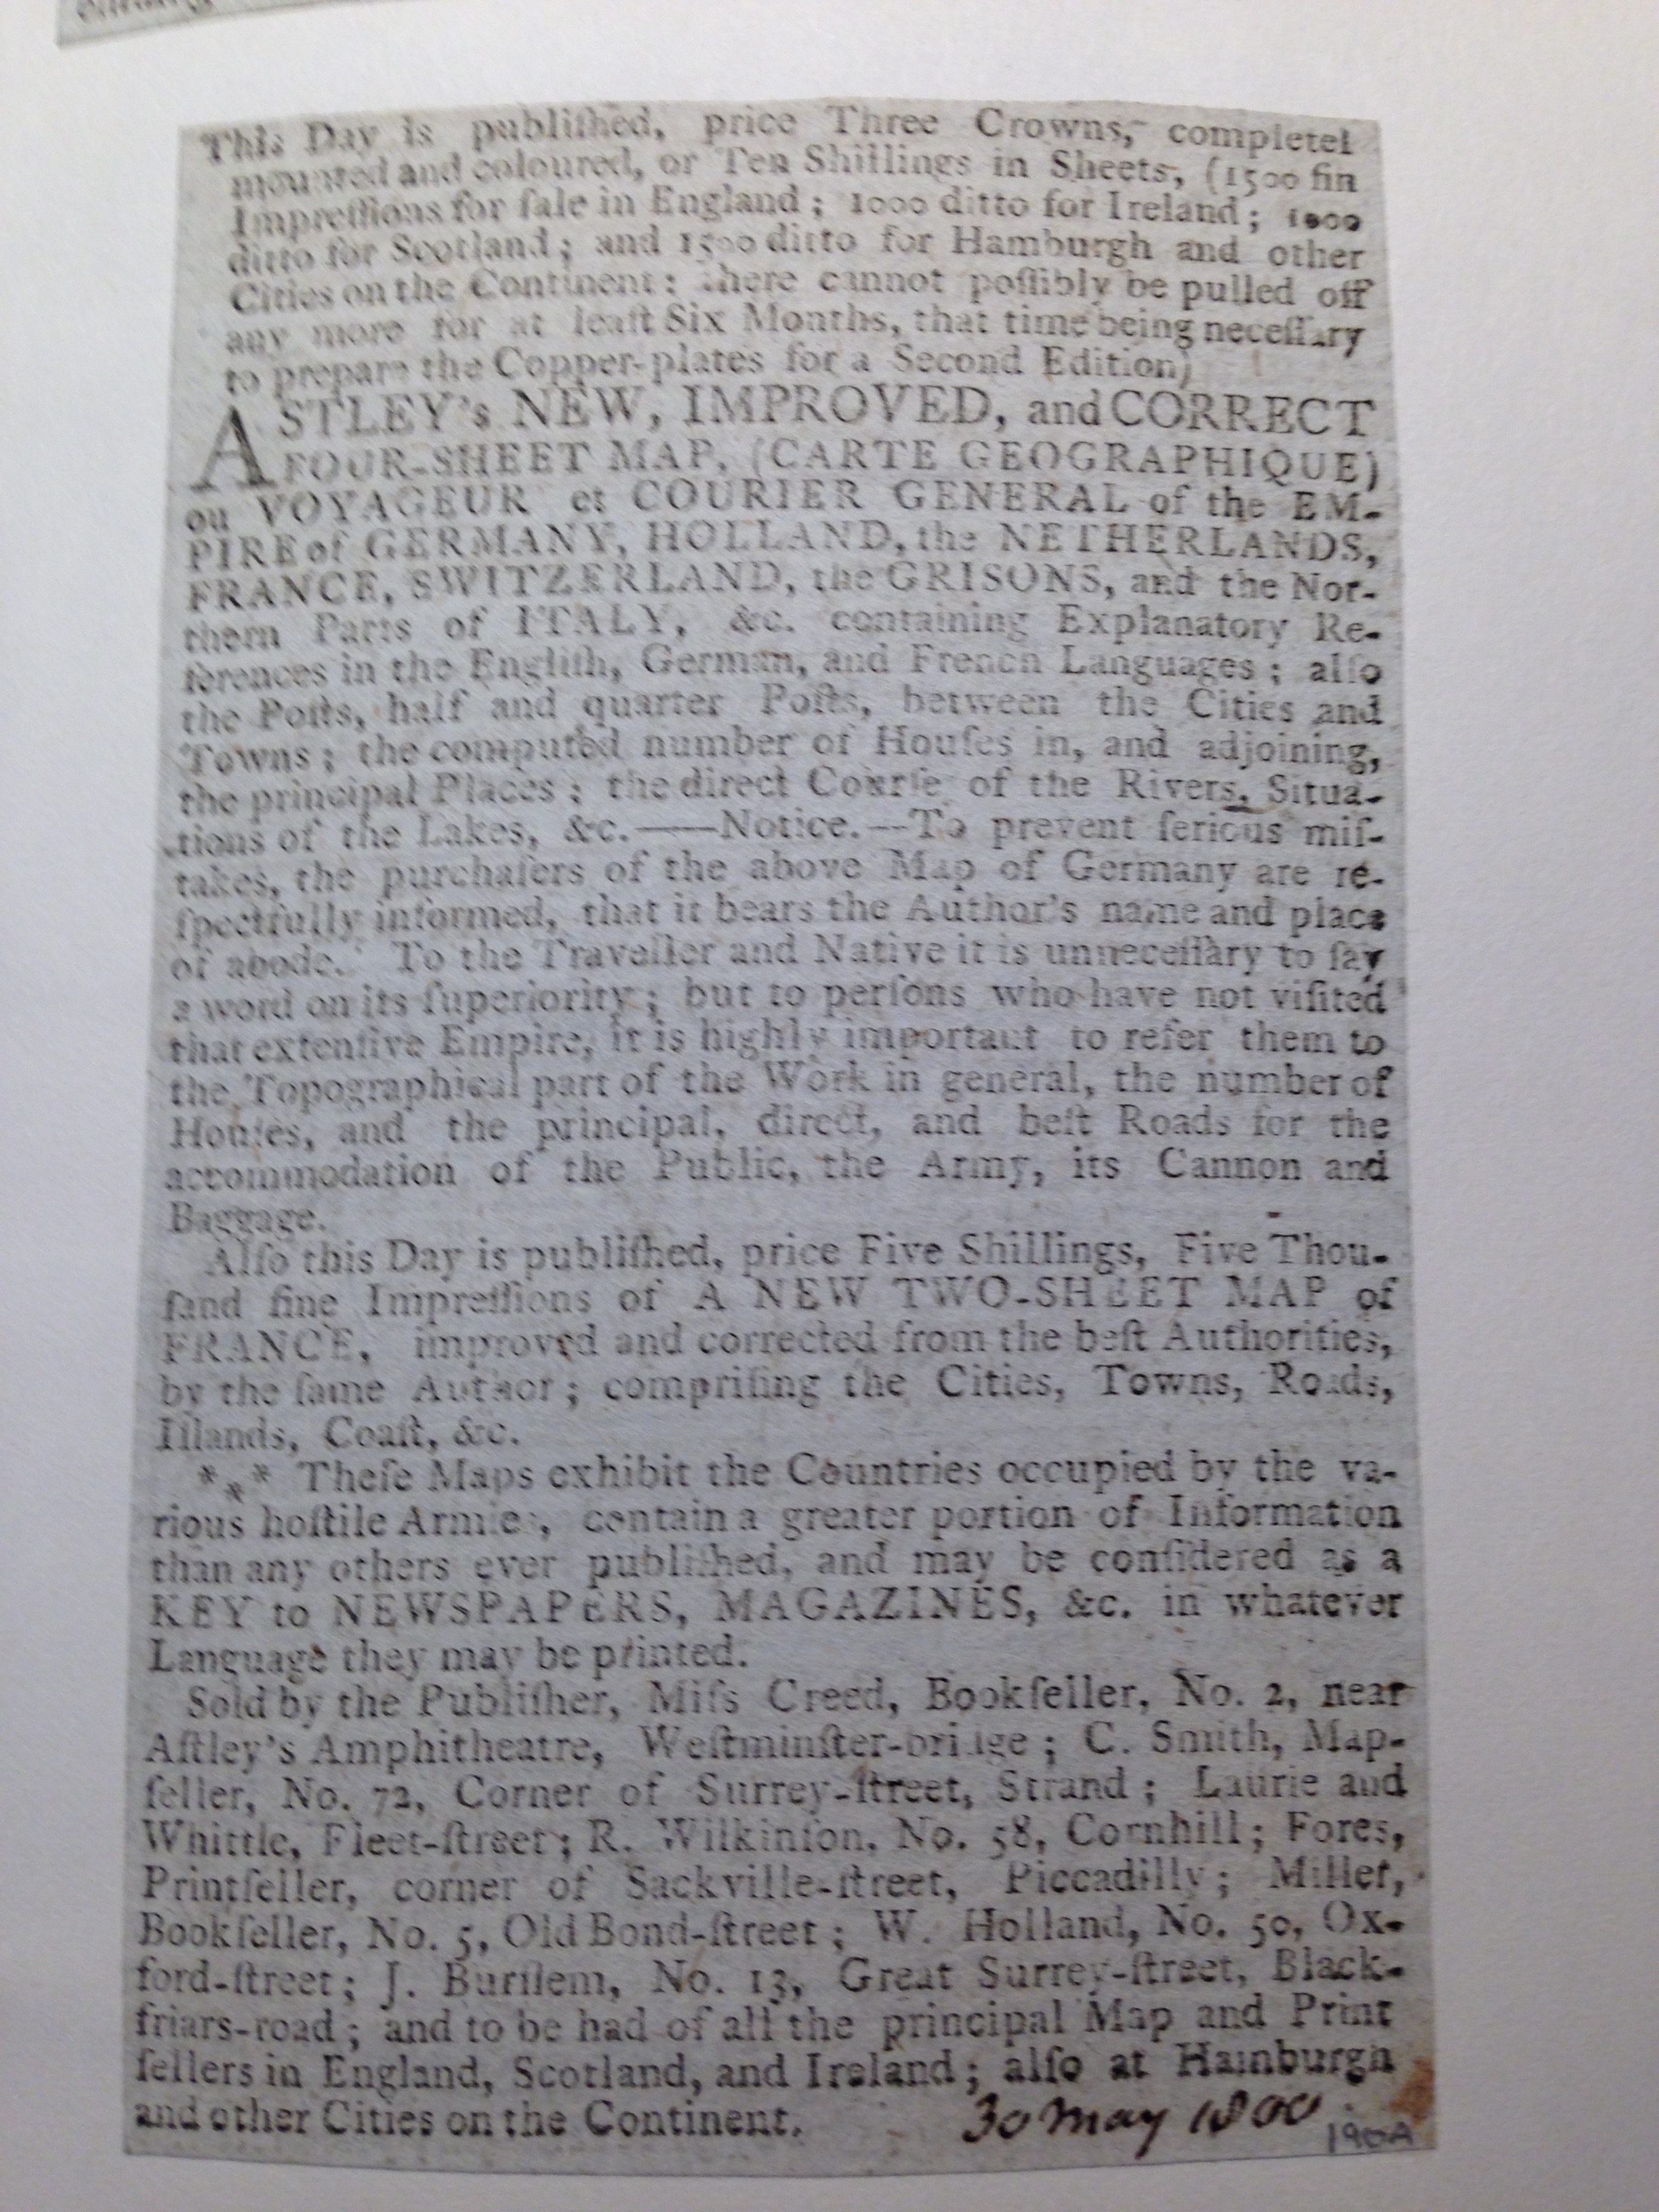 This Day is publiſhed, price Three Crowns, completel
mounted and coloured, or Ten Shillings in Sheets, (1500 fin
Impreſſions for ſale in England; 1000 ditto for Ireland; 1000
ditto for Scotland; and 1500 ditto for Hamburgh and other
Cities on the Continent: there cannot poſſibly be pulled off
any more for at leaſt Six Months, that time being neceſſary
to prepare the Copper-plates for a Second Edition)
ASTLEY's NEW, IMPROVED, and CORRECT
FOUR-SHEET MAP, (CARTE GEOGRAPHIQUE)
ou VOYAGEUR et COURIER GENERAL of the EM-
PIRE of GERMANY, HOLLAND, the NETHERLANDS,
FRANCE, SWITZERLAND, the GRISONS, and the Nor-
thern Parts of ITALY, &c. containing Explanatory Re-
ferences in the Engliſh, German, and French Languages; alſo
the Poſts, half and quarter Poſts, between the Cities and
Towns; the computed number of Houſes in, and adjoining,
the principal Places; the direct Courſe of the Rivers, Situa-
tions of the Lakes, &c.——Notice.—To prevent ſerious miſ-
takes, the purchaſers of the above Map of Germany are re-
ſpectfully informed, that it bears the Author's name and place
of abode. To the Traveller and Native it is unneceſſary to ſay
a word on its ſuperiority; but to perſons who have not viſited
that extenſive Empire, it is highly important to refer them to
the Topographical part of the Work in general, the number of
Houſes, and the principal, direct, and beſt Roads for the
accommodation of the Public, the Army, its Cannon and
Baggage.
Alſo this Day is publiſhed, price Five Shillings, Five Thou-
ſand fine Impreſſions of A NEW TWO-SHEET MAP of
FRANCE, improved and corrected from the beſt Authorities,
by the ſame Author; compriſing the Cities, Towns, Roads,
Iſlands, Coaſt, &c.
*⁎* Theſe Maps exhibit the Countries occupied by the va-
rious hoſtile Armies, contain a greater portion of Information
than any others ever publiſhed, and may be conſidered as a
KEY to NEWSPAPERS, MAGAZINES, &c. in whatever
Language they may be printed.
Sold by the Publiſher, Miſs Creed, Bookſeller, No. 2, near
Aſtley's Amphitheatre, Weſtminſter-bridge; C. Smith, Map-
ſeller, No. 72, Corner of Surrey-ſtreet, Strand; Laurie and
Whittle, Fleet-ſtreet; R. Wilkinſon, No. 58, Cornhill; Fores,
Printſeller, corner of Sackville-ſtreet, Piccadilly; Miller,
Bookſeller, No. 5, Old Bond-ſtreet; W. Holland, No. 50, Ox-
ford-ſtreet; J. Burſlem, No. 13, Great Surrey-ſtreet, Black-
friars-road; and to be had of all the principal Map and Print
ſellers in England, Scotland, and Ireland; alſo at Hamburgh
and other Cities on the Continent. 30 May 1800
190A